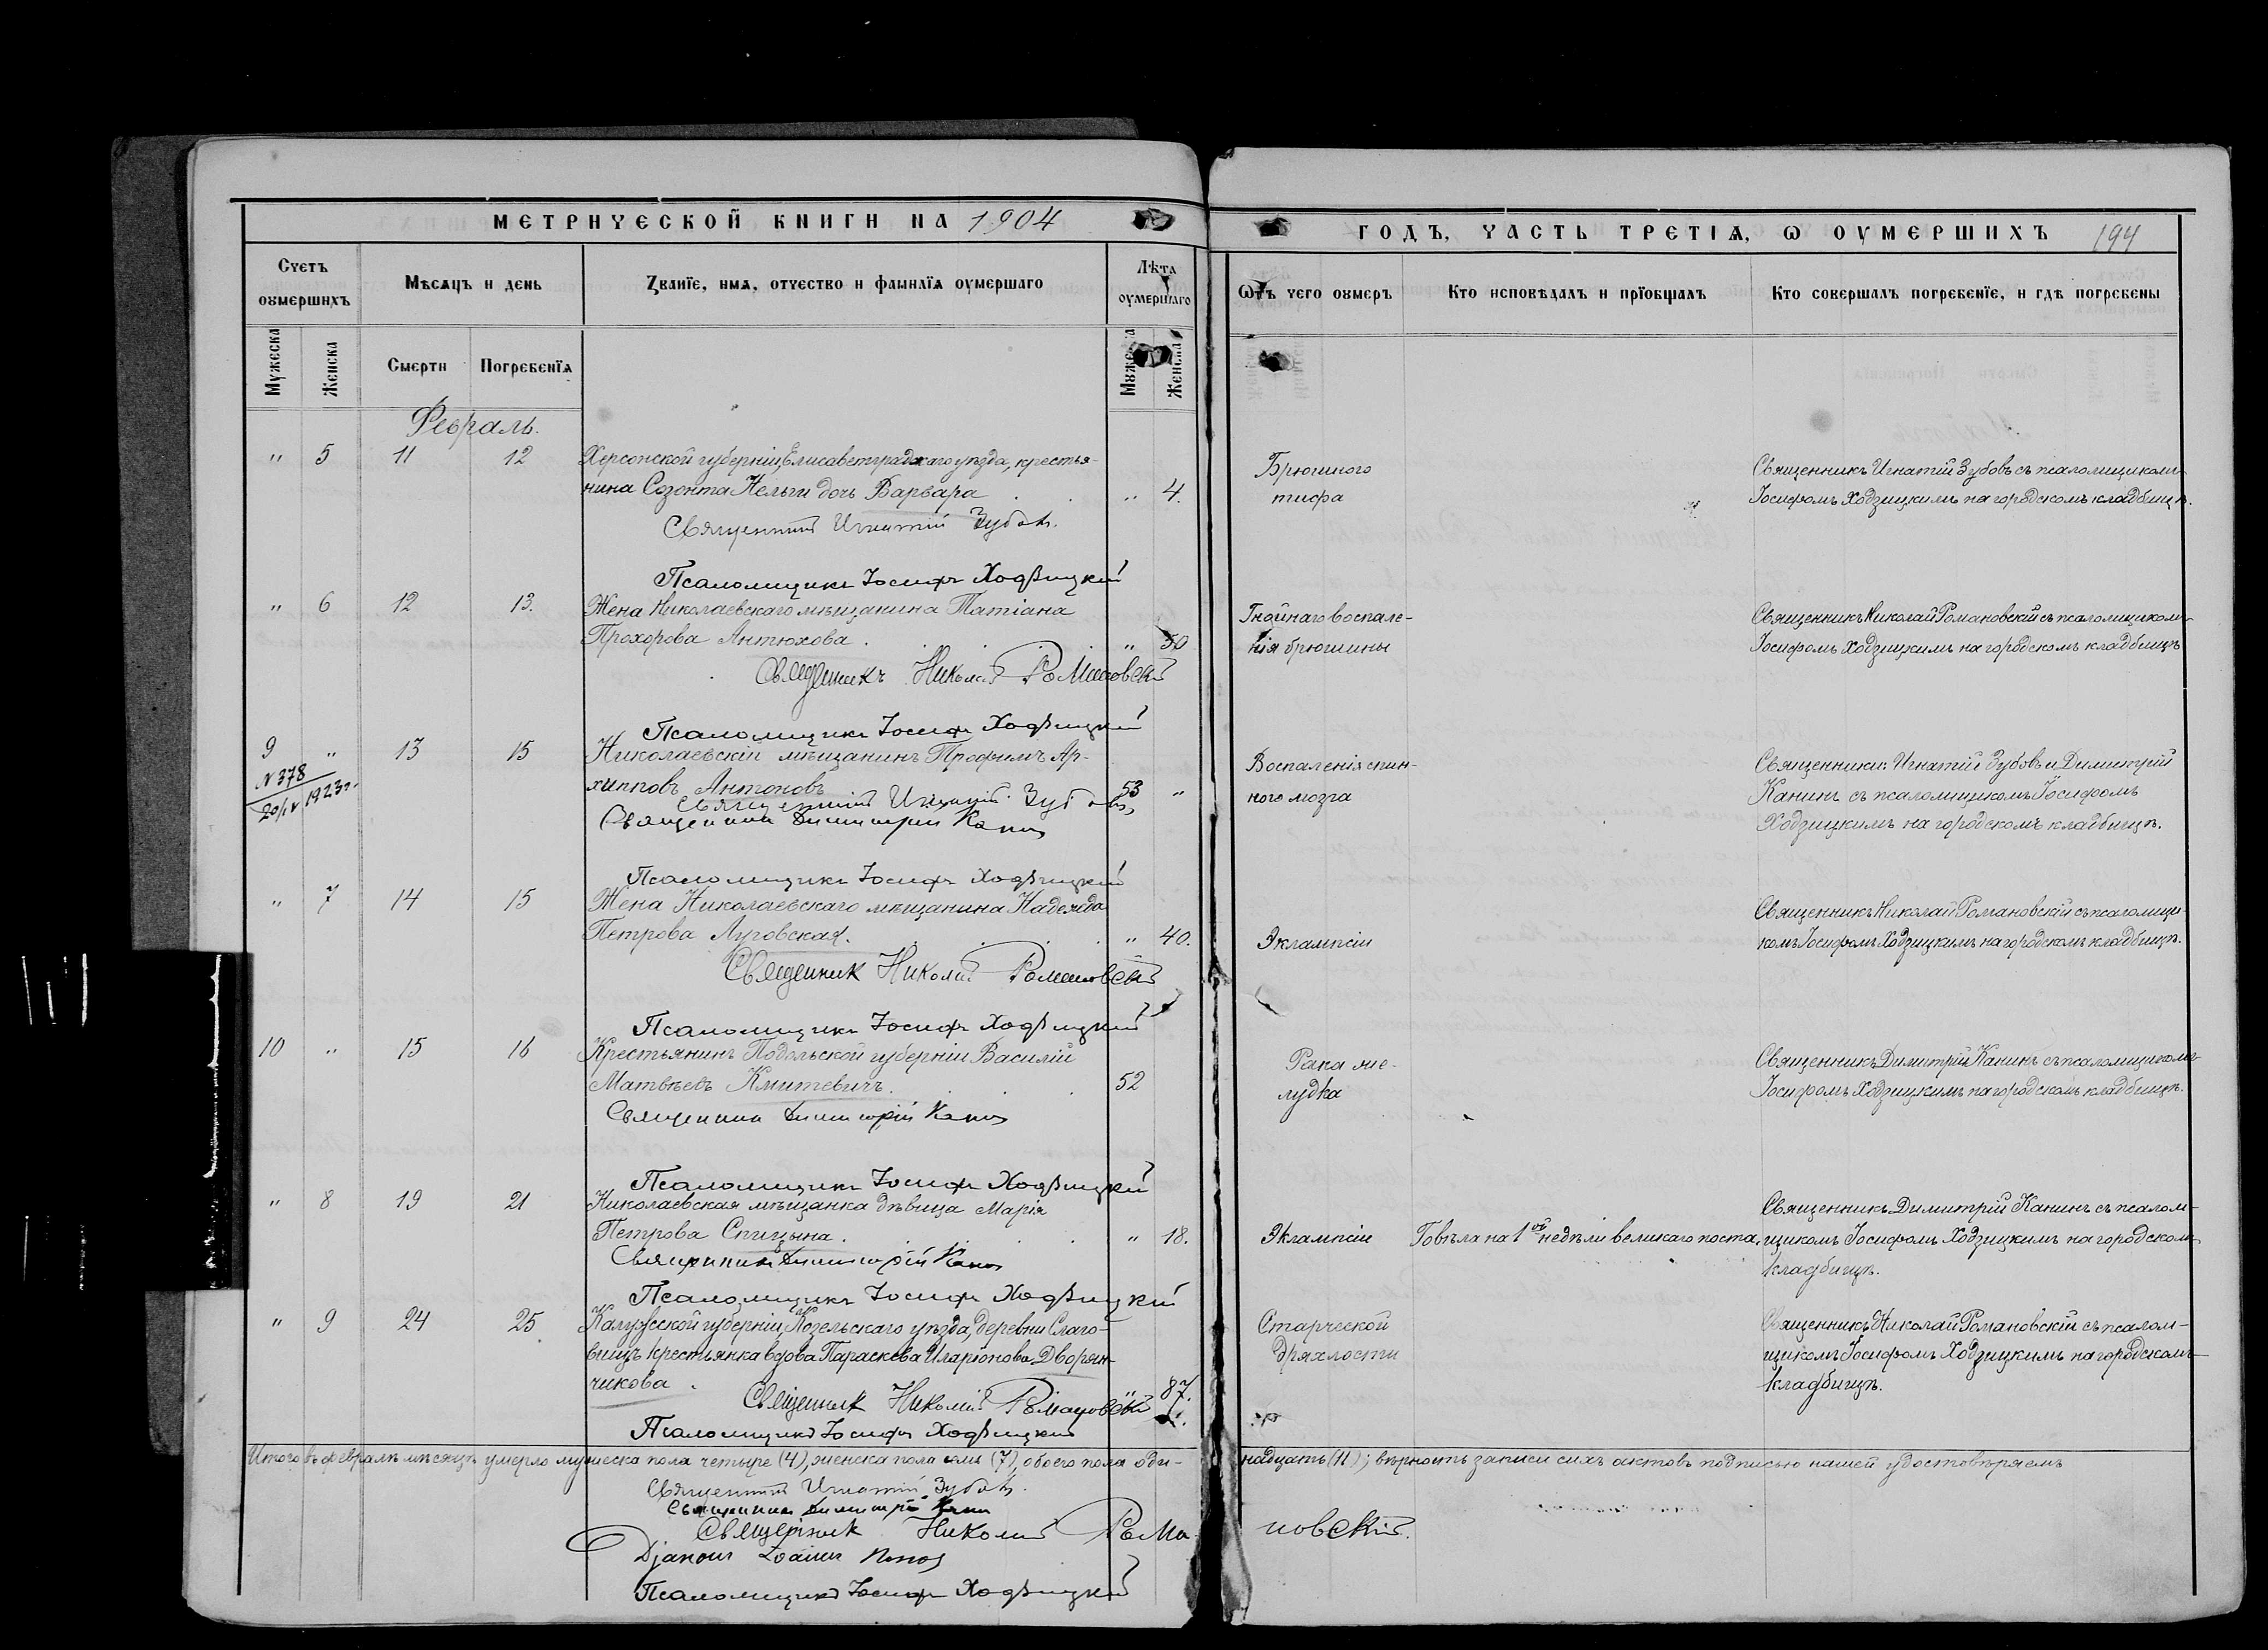 МЕТРИЧЕСКОЙ КНИГИ НА 1904
ГОДЪ, ЧАСТЬ ТРЕТІѦ, Ѡ ОУМЕРШИХЪ 194
Счетъ оумершихъ
Мѣсѧцъ и день
Званїе, имѧ, отчество и фамилїѧ оумершаго
Лѣта оумершаго
Ѡтъ чего оумеръ
Кто исповѣдалъ и прїобщалъ
Кто совершалъ погребенїе, и гдѣ погребены
Мужеска
Женска
Смерти
Погребенїѧ
Мужеска
Женска
Февраль.
" 5 11 12 Херсонской губерніи, Елисаветградскаго уѣзда, крестья-
нина Созонта Нельги дочь Варвара . . " 4.
Брюшного
тифа
Священникъ Игнатій Зубовъ съ псаломщикомъ
Іосифомъ Ходзицкимъ на городскомъ кладбищѣ.
Священникъ Игнатій Зубовъ.
Псаломщикъ Іосифъ Ходзицкій
" 6 12 13. Жена Николаевскаго мѣщанина Татіана
Прохорова Антюхова . . . . . " 50
Гнойнаго воспале-
нія брюшины
Священникъ Николай Романовскій съ псаломщикомъ
Іосифомъ Ходзицкимъ на городскомъ кладбищѣ
Священникъ Николай Романовскій
Псаломщикъ Іосифъ Ходзицкій
9 " 13 15 Николаевскій мѣщанинъ Трофимъ Ар-
хипповъ Антоновъ 53 "
N 378
20/IV 1923 г.
Воспаленія спин-
ного мозга
Священники: Игнатій Зубовъ и Димитрій
Канинъ съ псаломщикомъ Іосифомъ
Ходзицкимъ на городскомъ кладбищѣ.
Священникъ Игнатій Зубовъ
Священникъ Димитрій Канинъ
Псаломщикъ Іосифъ Ходзицкій
" 7 14 15 Жена Николаевскаго мѣщанина Надежда
Петрова Луговская. . . . . " 40.
Эклампсіи
Священникъ Николай Романовскій съ псаломщи-
комъ Іосифомъ Ходзицкимъ на городскомъ кладбищѣ.
Священник Николай Романовскій
Псаломщикъ Іосифъ Ходзицкій
10 " 15 16 Крестьянинъ Подольской губерніи Василій
Матвѣевъ Кмитевичъ. . . . 52
Рака же-
лудка
Священникъ Димитрій Канинъ съ псаломщикомъ
Іосифомъ Ходзицкимъ на городскомъ кладбищѣ.
Священникъ Димитрій Канинъ
Псаломщикъ Іосифъ Ходзицкій
" 8 19 21 Николаевская мѣщанка дѣвица Марія
Петрова Спицына . . . . . " 18.
Эклампсіи
Говѣла на 1ой недѣли великаго поста.
Священникъ Димитрій Канинъ съ псалом-
щикомъ Іосифомъ Ходзицкимъ на городскомъ
кладбищѣ.
Священникъ Димитрій Канинъ
Псаломщикъ Іосифъ Ходзицкій
" 9 24 25 Калужской губерніи, Козельскаго уѣзда, деревни Слаго-
вищъ крестьянка вдова Параскева Иларіонова Дворян-
чикова . " 87.
Старческой
дряхлости
Священникъ Николай Романовскій съ псалом-
щикомъ Іосифомъ Ходзицкимъ на городскомъ
кладбищѣ.
Священник Николай Романовскій
Псаломщикъ Іосифъ Ходзицкій
Итого въ февралѣ мѣсяцѣ умерло мужеска пола четыре (4), женска пола семь (7), обоего пола оди-
надцать (11); вѣрность записи сихъ актовъ подписью нашей удостовѣряемъ
Священникъ Игнатій Зубовъ.
Священникъ Димитрій Канинъ
Священник Николай Рома-
новскій.
Діаконъ Іоаннъ
Псаломщикъ Іосифъ Ходзицкій